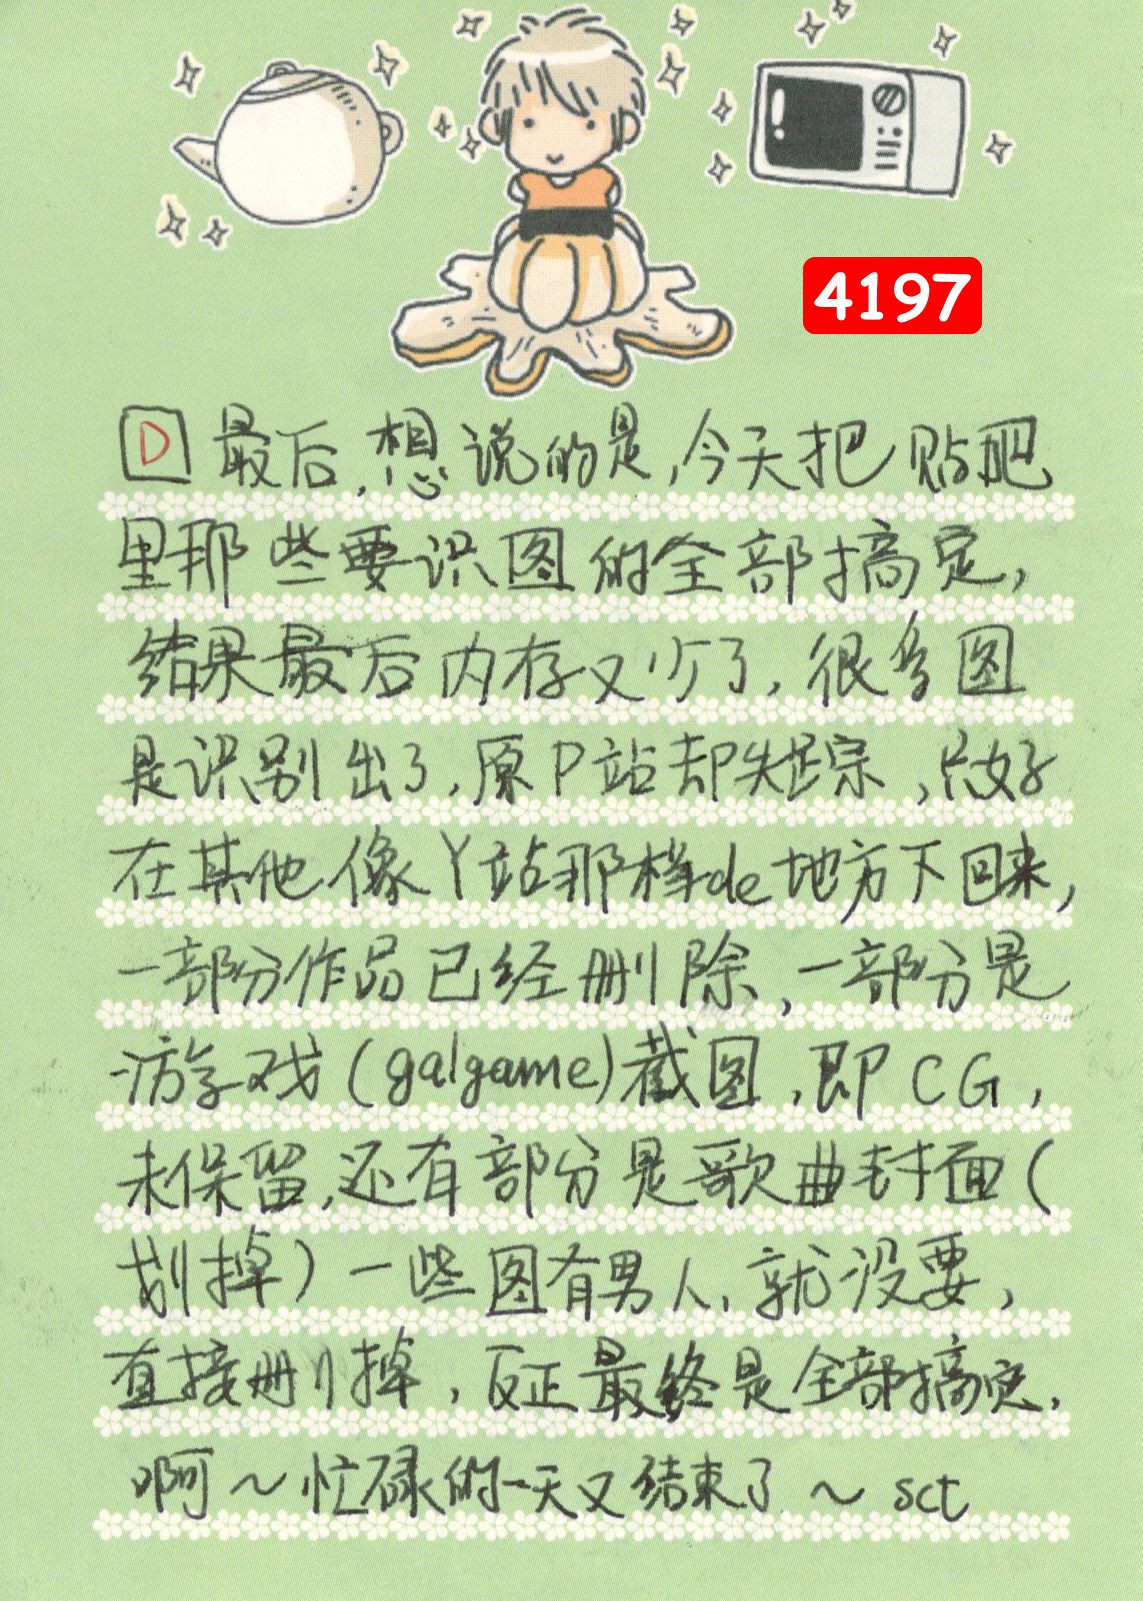 4197
D 最后,想说的是,今天把贴吧
里那些要识图的全部搞定,
结果最后内存又少了,很多图
是识别出了,原P站却失踪,只好
在其他像Y站那档de地方下回来,
一部分作品已经删除,一部分是
游戏(galgame)截图,即CG,
未保留,还有部分是歌曲封面(
划掉)一些图有男人,就没要,
直接删掉,反正最终是全部搞定,
啊~忙碌的一天又结束了~sct